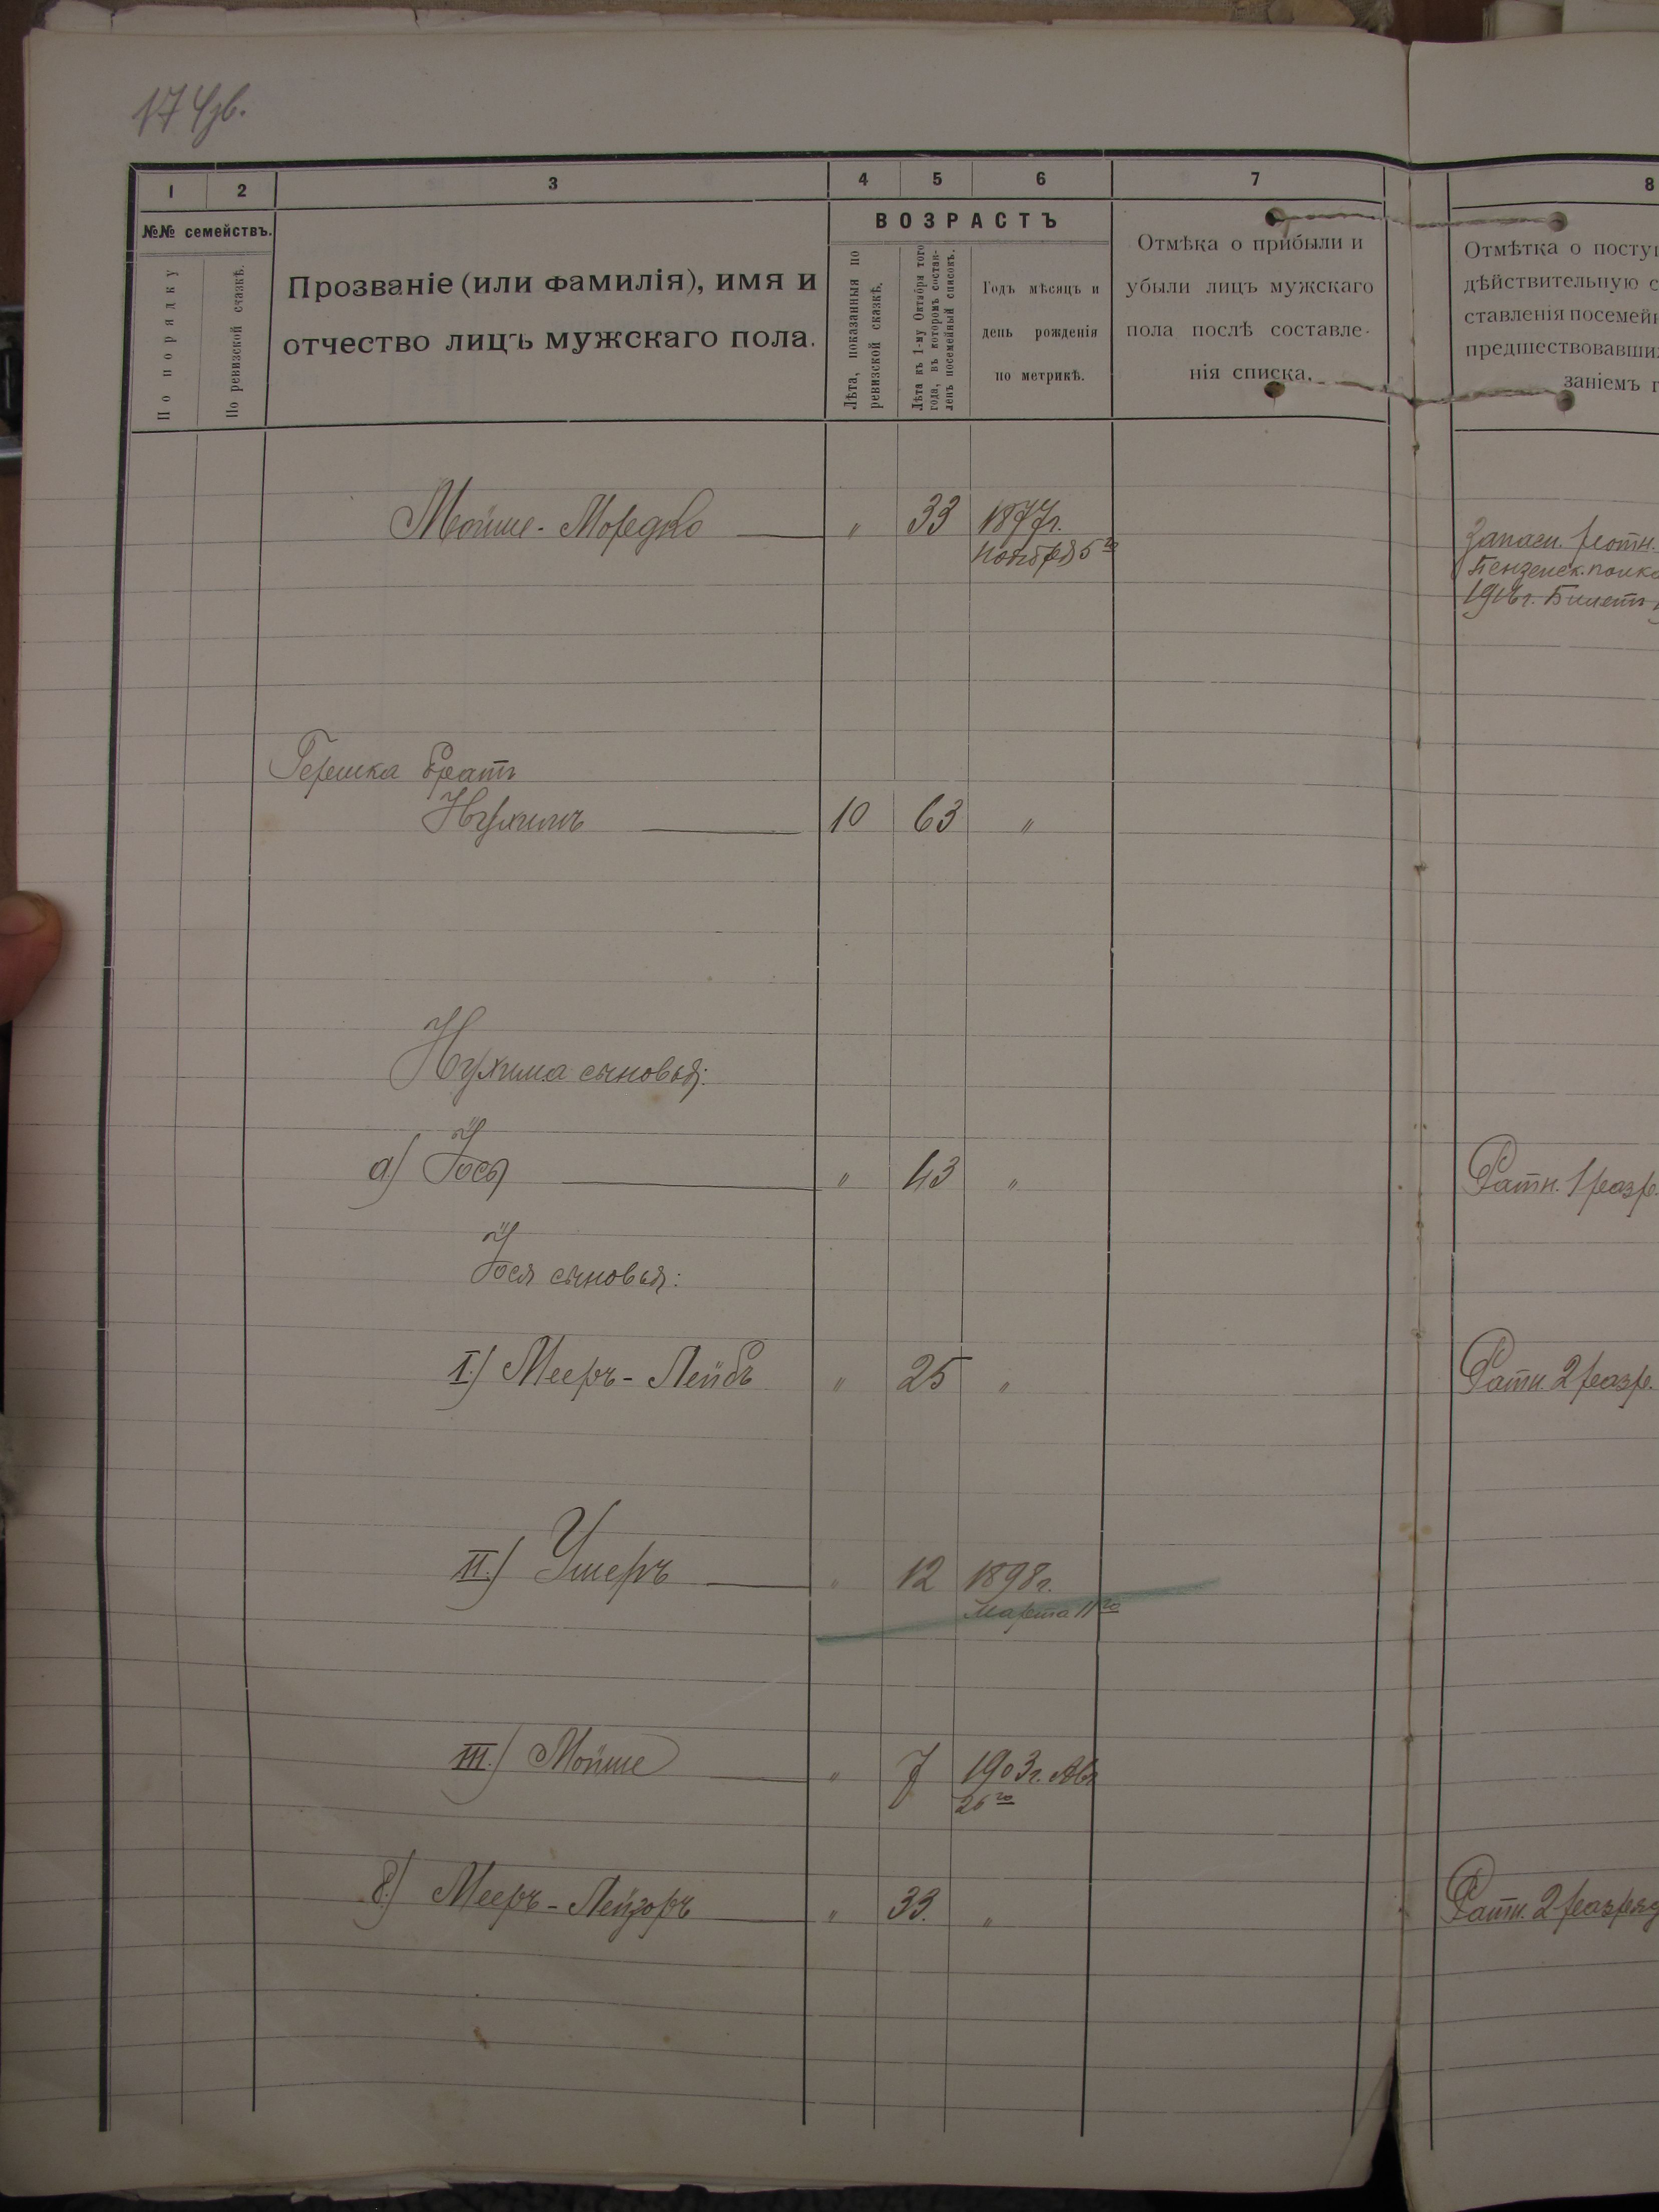 174 зв.
1 2 3 4 5 6 7 8
№№ семействъ.
По порядку
По ревизской сказкѣ.
Прозваніе (или фамилія), имя и
отчество лицъ мужскаго пола.
ВОЗРАСТЪ
Лѣта, показанныя по
ревизской сказкѣ.
Лѣта къ 1-му Октября того
года, въ которомъ состав-
ленъ посемейный списокъ.
Годъ мѣсяцъ и
день рожденія
по метрикѣ.
Отмѣка о прибыли и
убыли лицъ мужскаго
пола послѣ составле-
нія списка.
Отмѣтка о посту
дѣйствительную с
ставленія посемей
предшествовавши
заніемъ г
Мойше-Мордко " 33 1877г.
Ноября 5го
Запасн.
Пензенск. полк
Билетъ
Гершка братъ
Нухимъ 10 63 "
Нухима сыновья:
а) Йось " 43 " Ратн. 1 разр.
Йося сыновья:
I.) Мееръ-Лейбъ " 25 " Ратн. 2 разр.
II.) Ушеръ " 12 1898г.
Марта 11го
III.) Мойше " 7 1903г. Авг
26го
б.) Мееръ-Лейзоръ " 33. " Ратн. 2 разряд